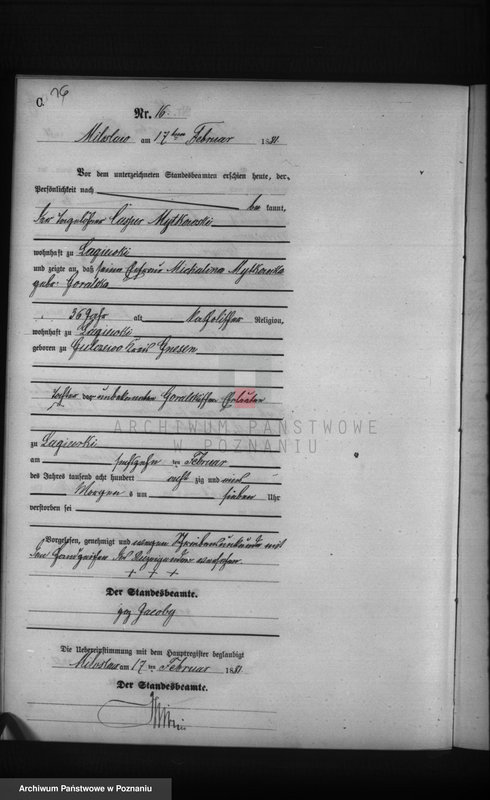 C. 26
Nr. 16.
Miloslaw am 17ten Februar 1881
Vor dem unterzeichneten Standesbeamten erschien heute, der
Persönlichkeit nach
be kannt,
der Tagelöhner Casper Mytkowski
wohnhaft zu Lagiewki
und zeigte an, daß seine Ehefrau Michalina Mytkowska
geb. Goralska
36 Jahr alt, katholischer Religion,
wohnhaft zu Lagiewki
geboren zu Kreis Gnesen
Tochter der unbekannten Goralskischen Eheleute
ARCHIWUM PAŃSTWOWE
W POZNANIU
zu Lagiewki
am sechszehn ten Februar
des Jahres tausend acht hundert acht zig und eins
Morgens um sieben Uhr
verstorben sei
Vorgelesen, genehmigt und wegen Schreibensunkunde mit
den Handzeichen des Anzeigenden versehen.
+ + +
Der Standesbeamte.
gez Jacoby
Die Uebereinstimmung mit dem Hauptregister beglaubigt
Miloslaw am 17ten Februar 1881
Der Standesbeamte.
Archiwum Państwowe w Poznaniu